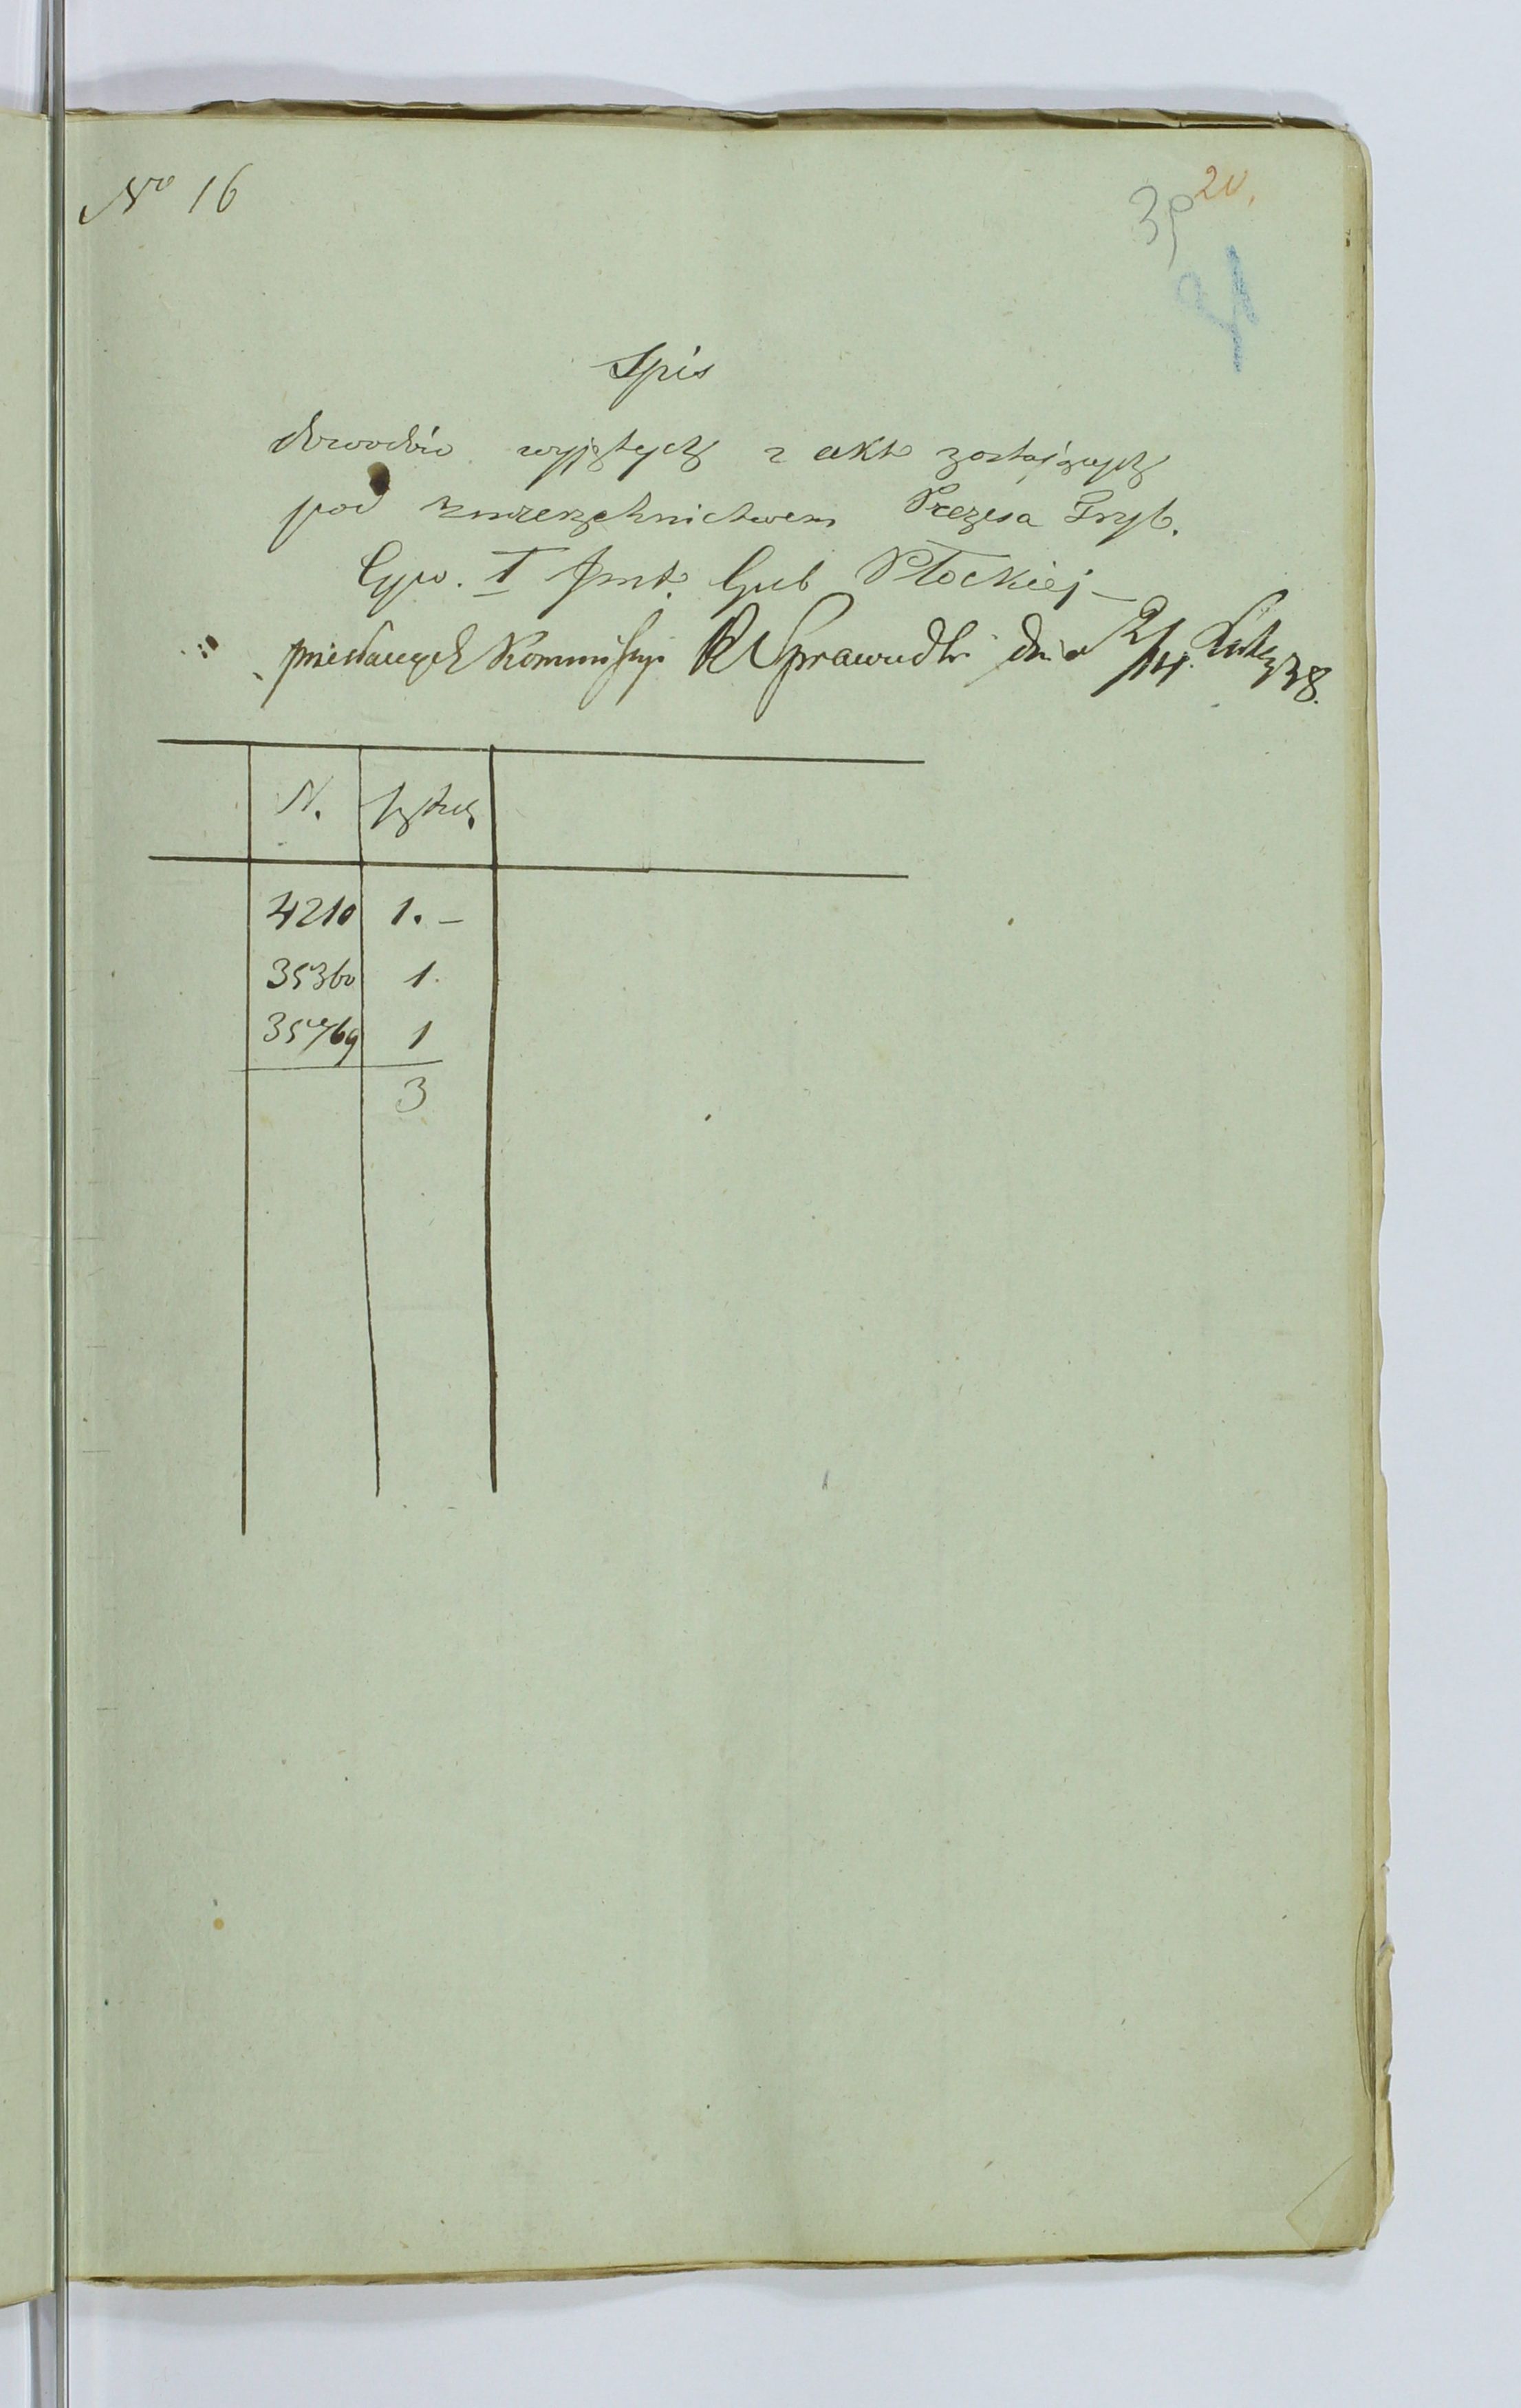 No 16
20.
Spis
dowodów wyjętych z akt zostających
pod zwierzchnictwem Prezesa Tryb.
Cyw. I Inst. Gub Płockiej –
przesłanych Kommissyi R Sprawiedli dnia 2/14. Luteg 38.
N. Sztuk
4210 1. –
35360 1.
35769 1
3